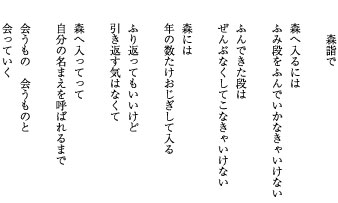 森詣で
森へ入るには
ふみ段をふんでいかなきゃいけない
ふんできた段は
ぜんぶなくしてこなきゃいけない
森には
年の数だけおじぎして入る
ふり返ってもいいけど
引き返す気はなくて
森へ入ってって
自分の名まえを呼ばれるまで
会うもの　会うものと
会っていく